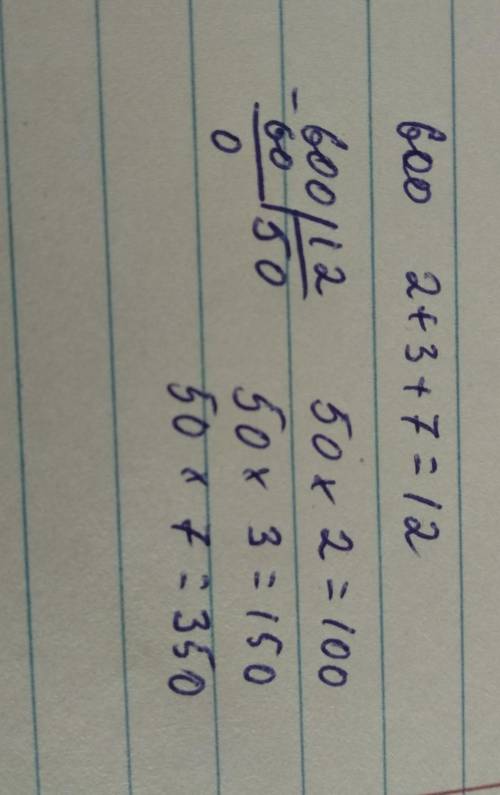 600 2+3+7=12
-600 | 12
60 | 50
0
50 x 2 = 100
50 x 3 = 150
50 x 7 = 350